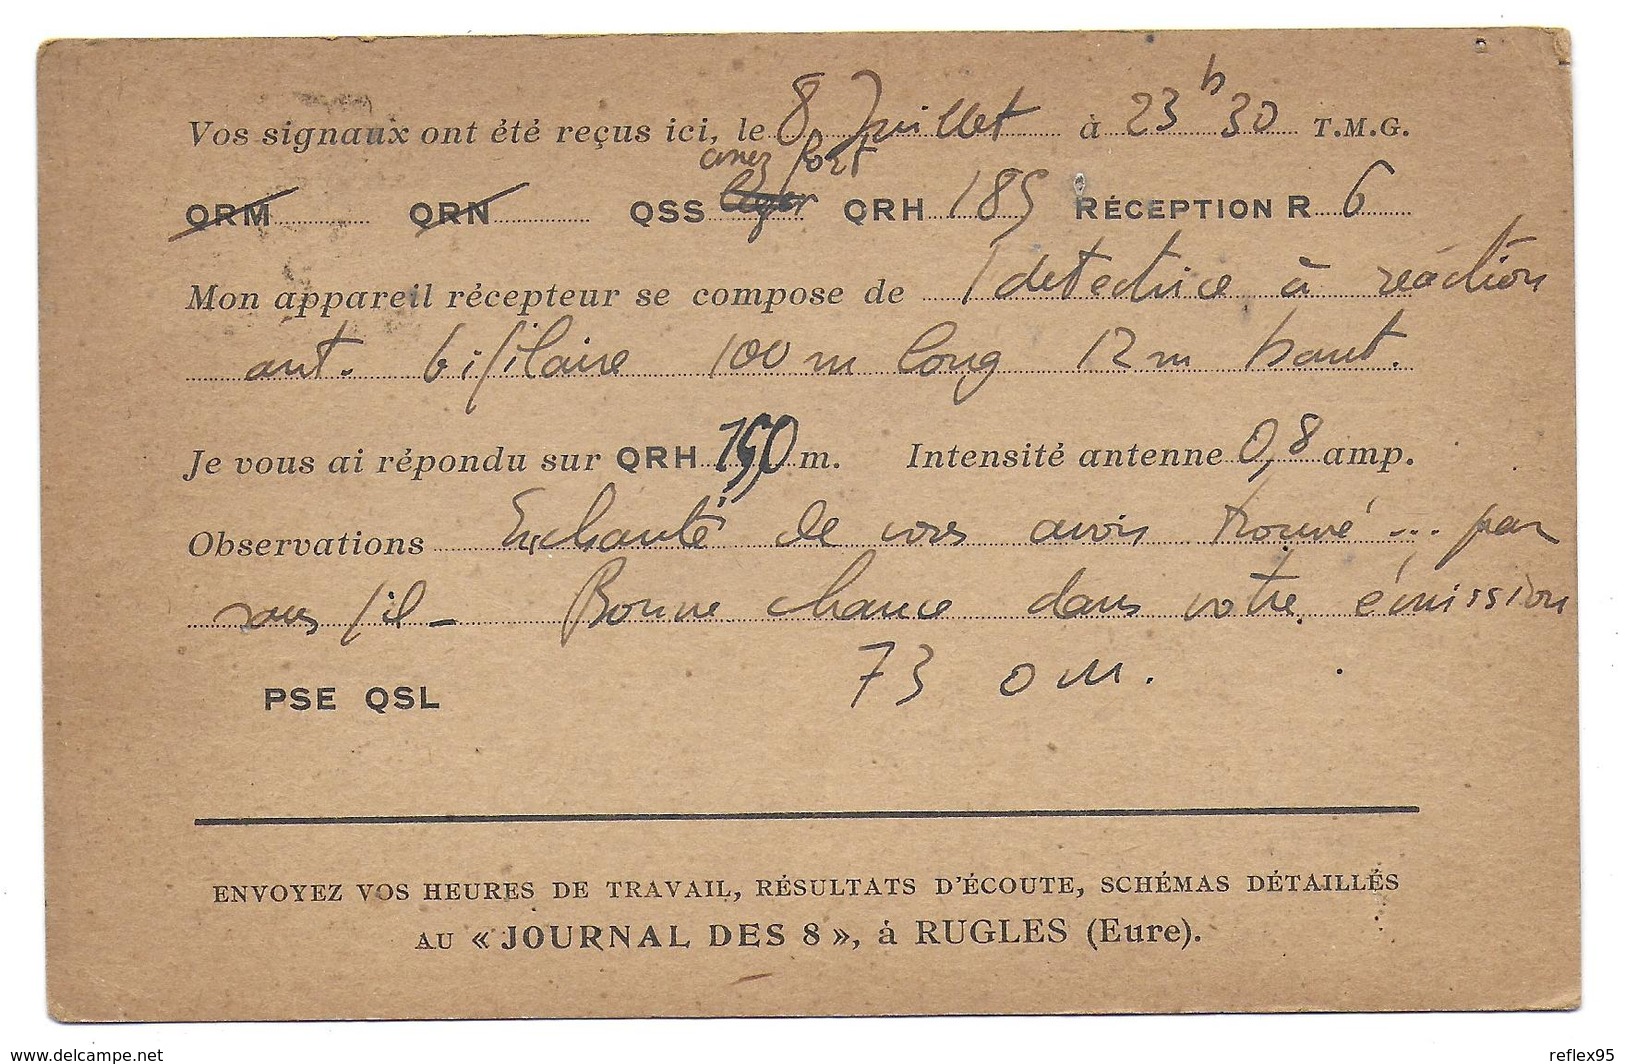 Vos signaux ont été reçus ici, le 8 Juillet à 23 h 30 T.M.G.
assez fort
QRM QRN QSS léger QRH 185 RÉCEPTION R 6
Mon appareil récepteur se compose de 1 detectrice à reáction
ant. bifilaire 100 m long 12 m haut.
Je vous ai répondu sur QRH 190 m. Intensité antenne 0,8 amp.
Observations Enchanté de vous avoir trouvé ... par
sans fil - Bonne chance dans votre émission
73 OM.
PSE QSL
ENVOYEZ VOS HEURES DE TRAVAIL, RÉSULTATS D'ÉCOUTE, SCHÉMAS DÉTAILLÉS
AU « JOURNAL DES 8 », à RUGLES (Eure).
www.delcampe.net
reflex95